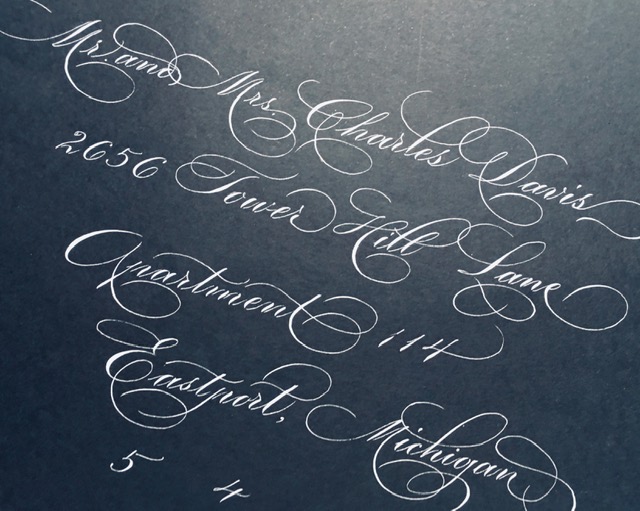 Mr. and Mrs. Charles Davis
2656 Tower Hill Lane
Apartment 114
Eastport, Michigan
5 4